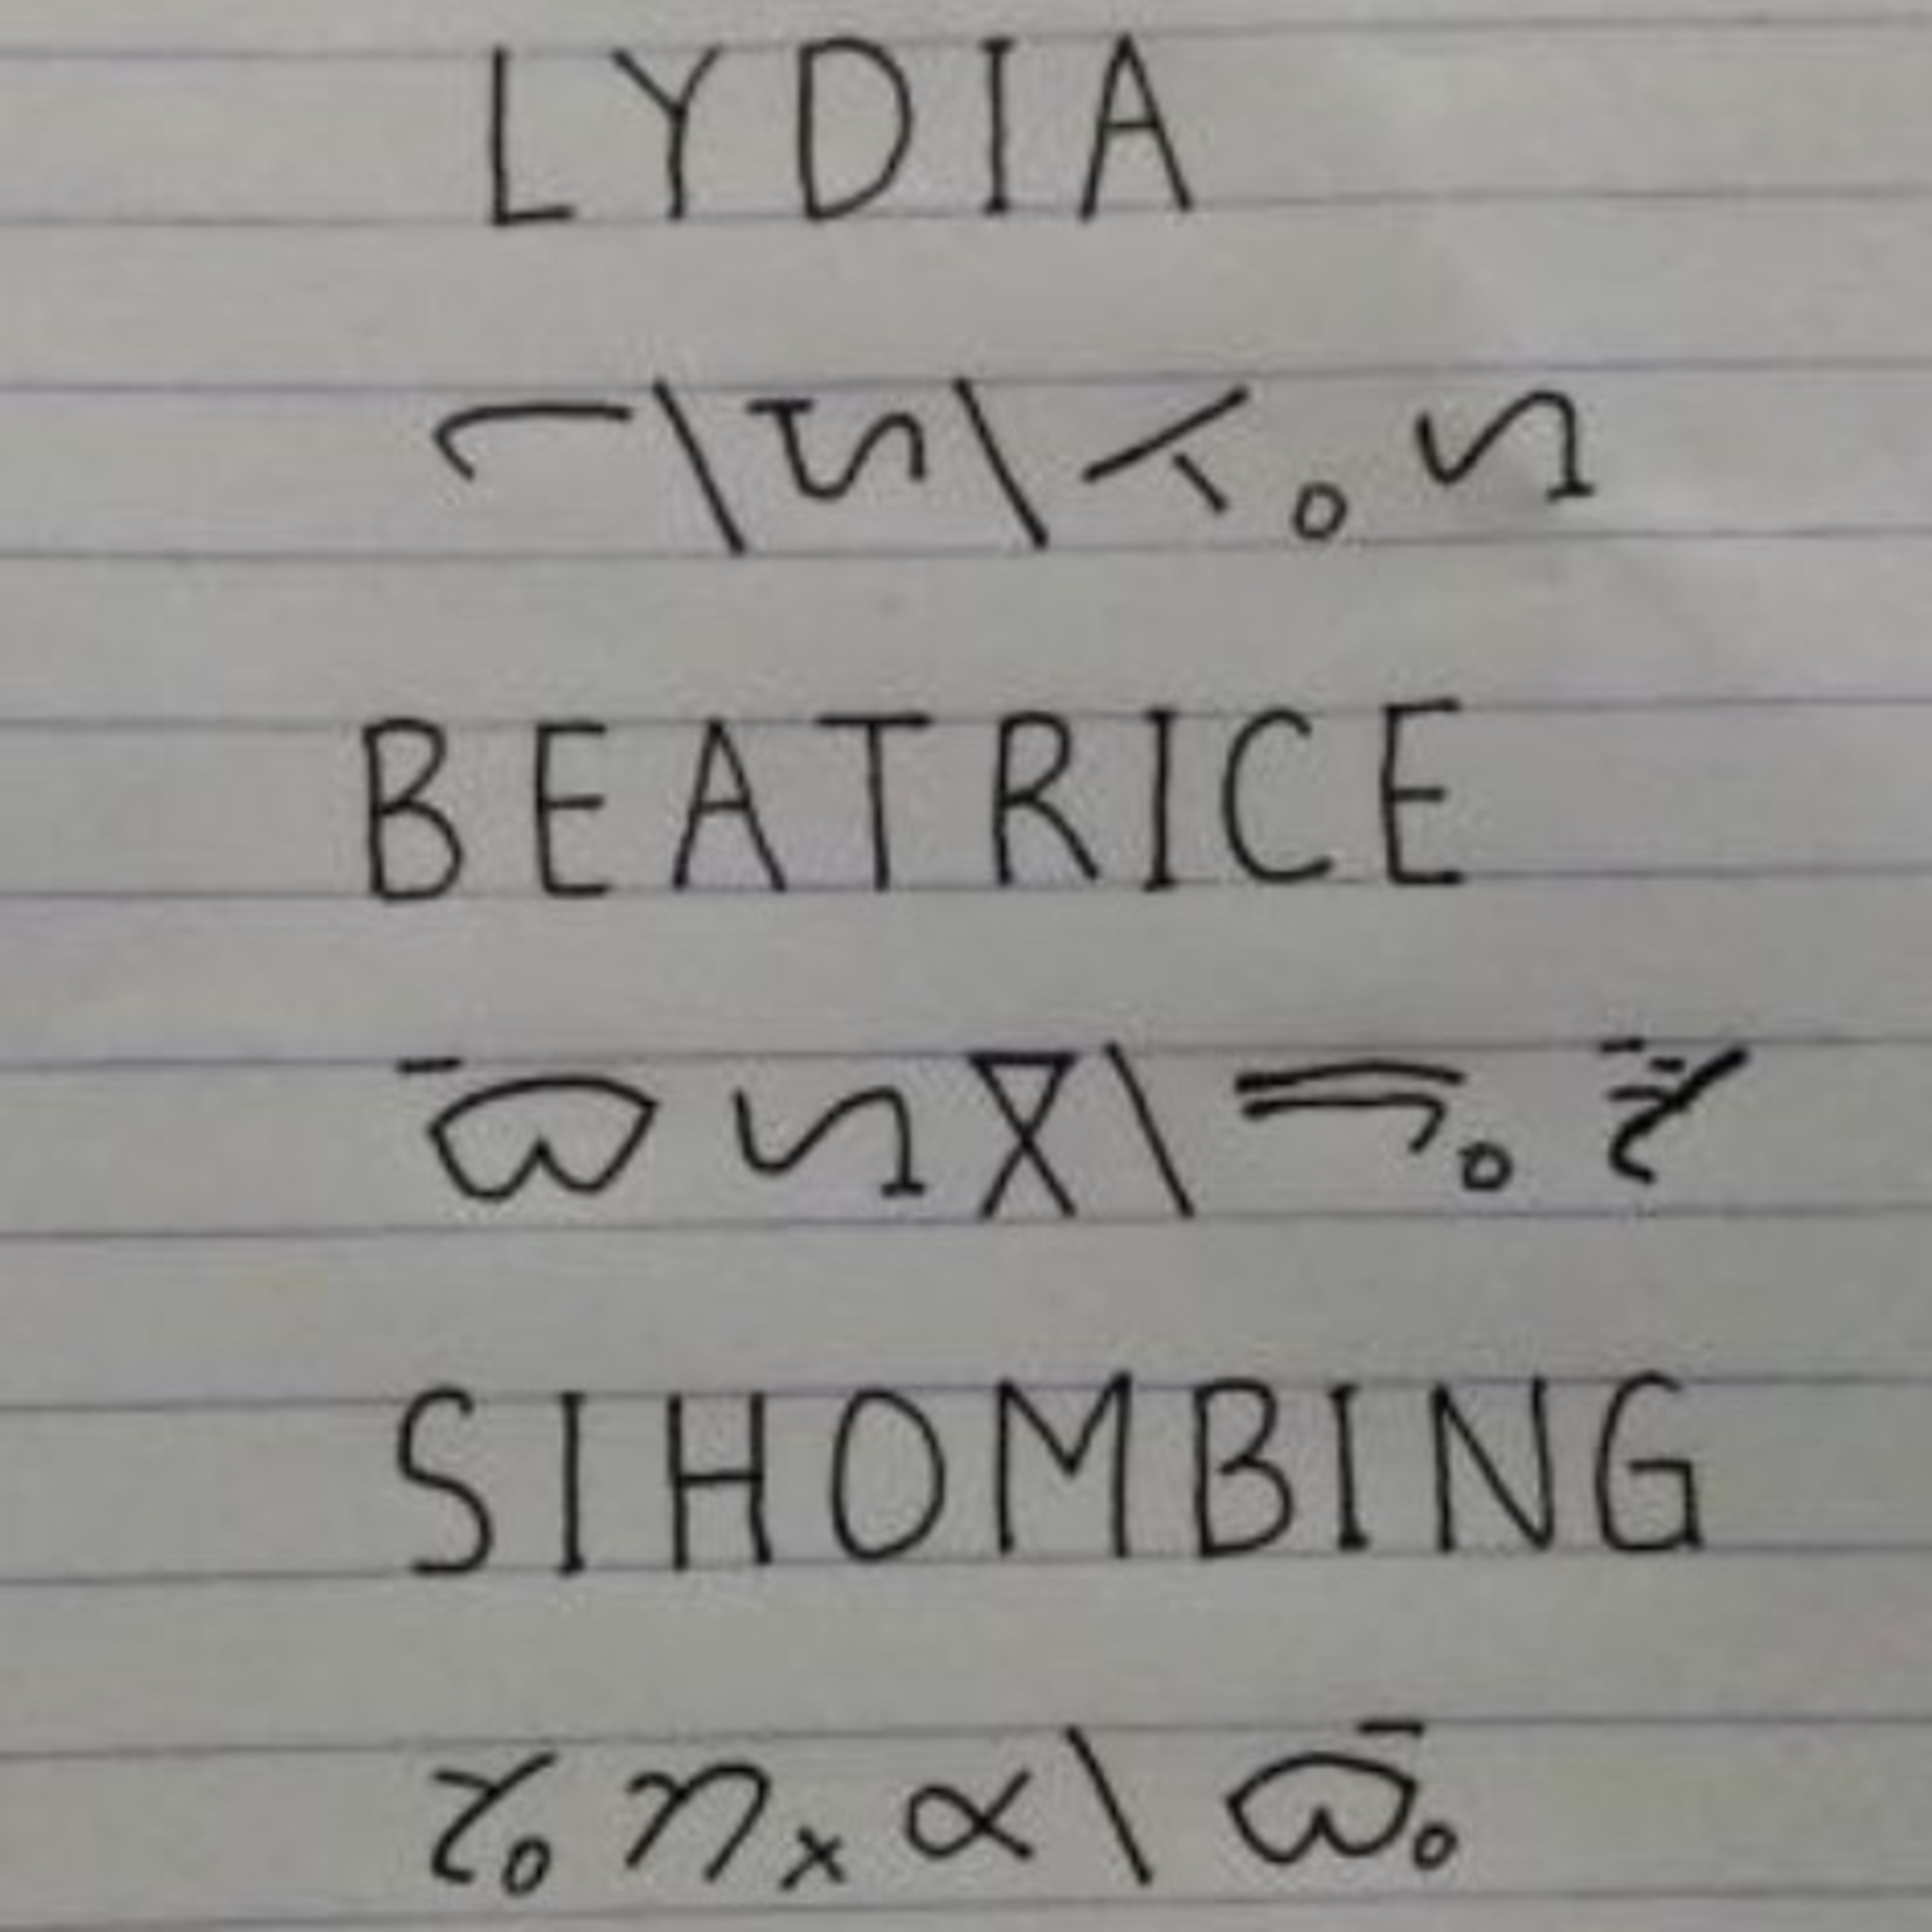 LYDIA
ᯞ᯲ᯛ᯲ᯑᯪᯀ
BEATRICE
ᯅᯧᯀᯖ᯲ᯒᯪᯘ᯦ᯧ
SIHOMBING
ᯘᯪᯂᯬᯔ᯲ᯅᯪᯰ